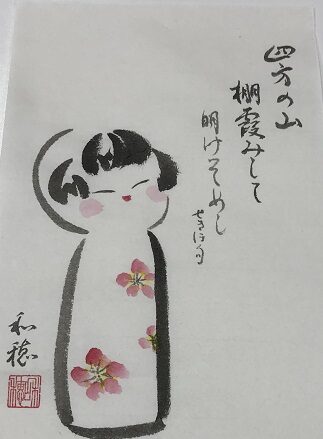 四方の山
棚霞みして
明けそめし
和穂